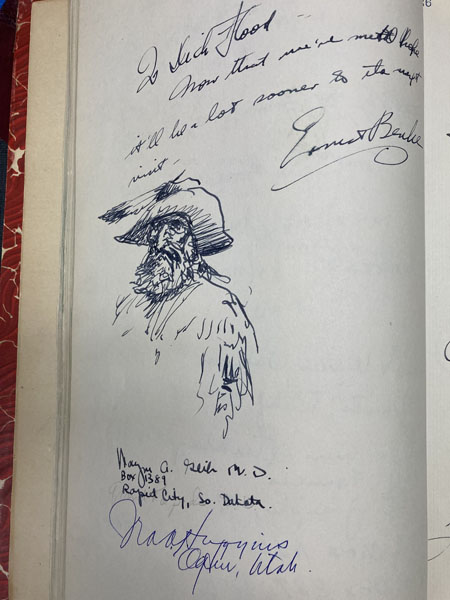 To Dick Flood —
Now that we've met I hope
it'll be a lot sooner to the next
visit —
Ernest Berke
Wayne A. M.D.
Box 1389
Rapid City, So. Dakota.
Huggins
Ogden, Utah.
26